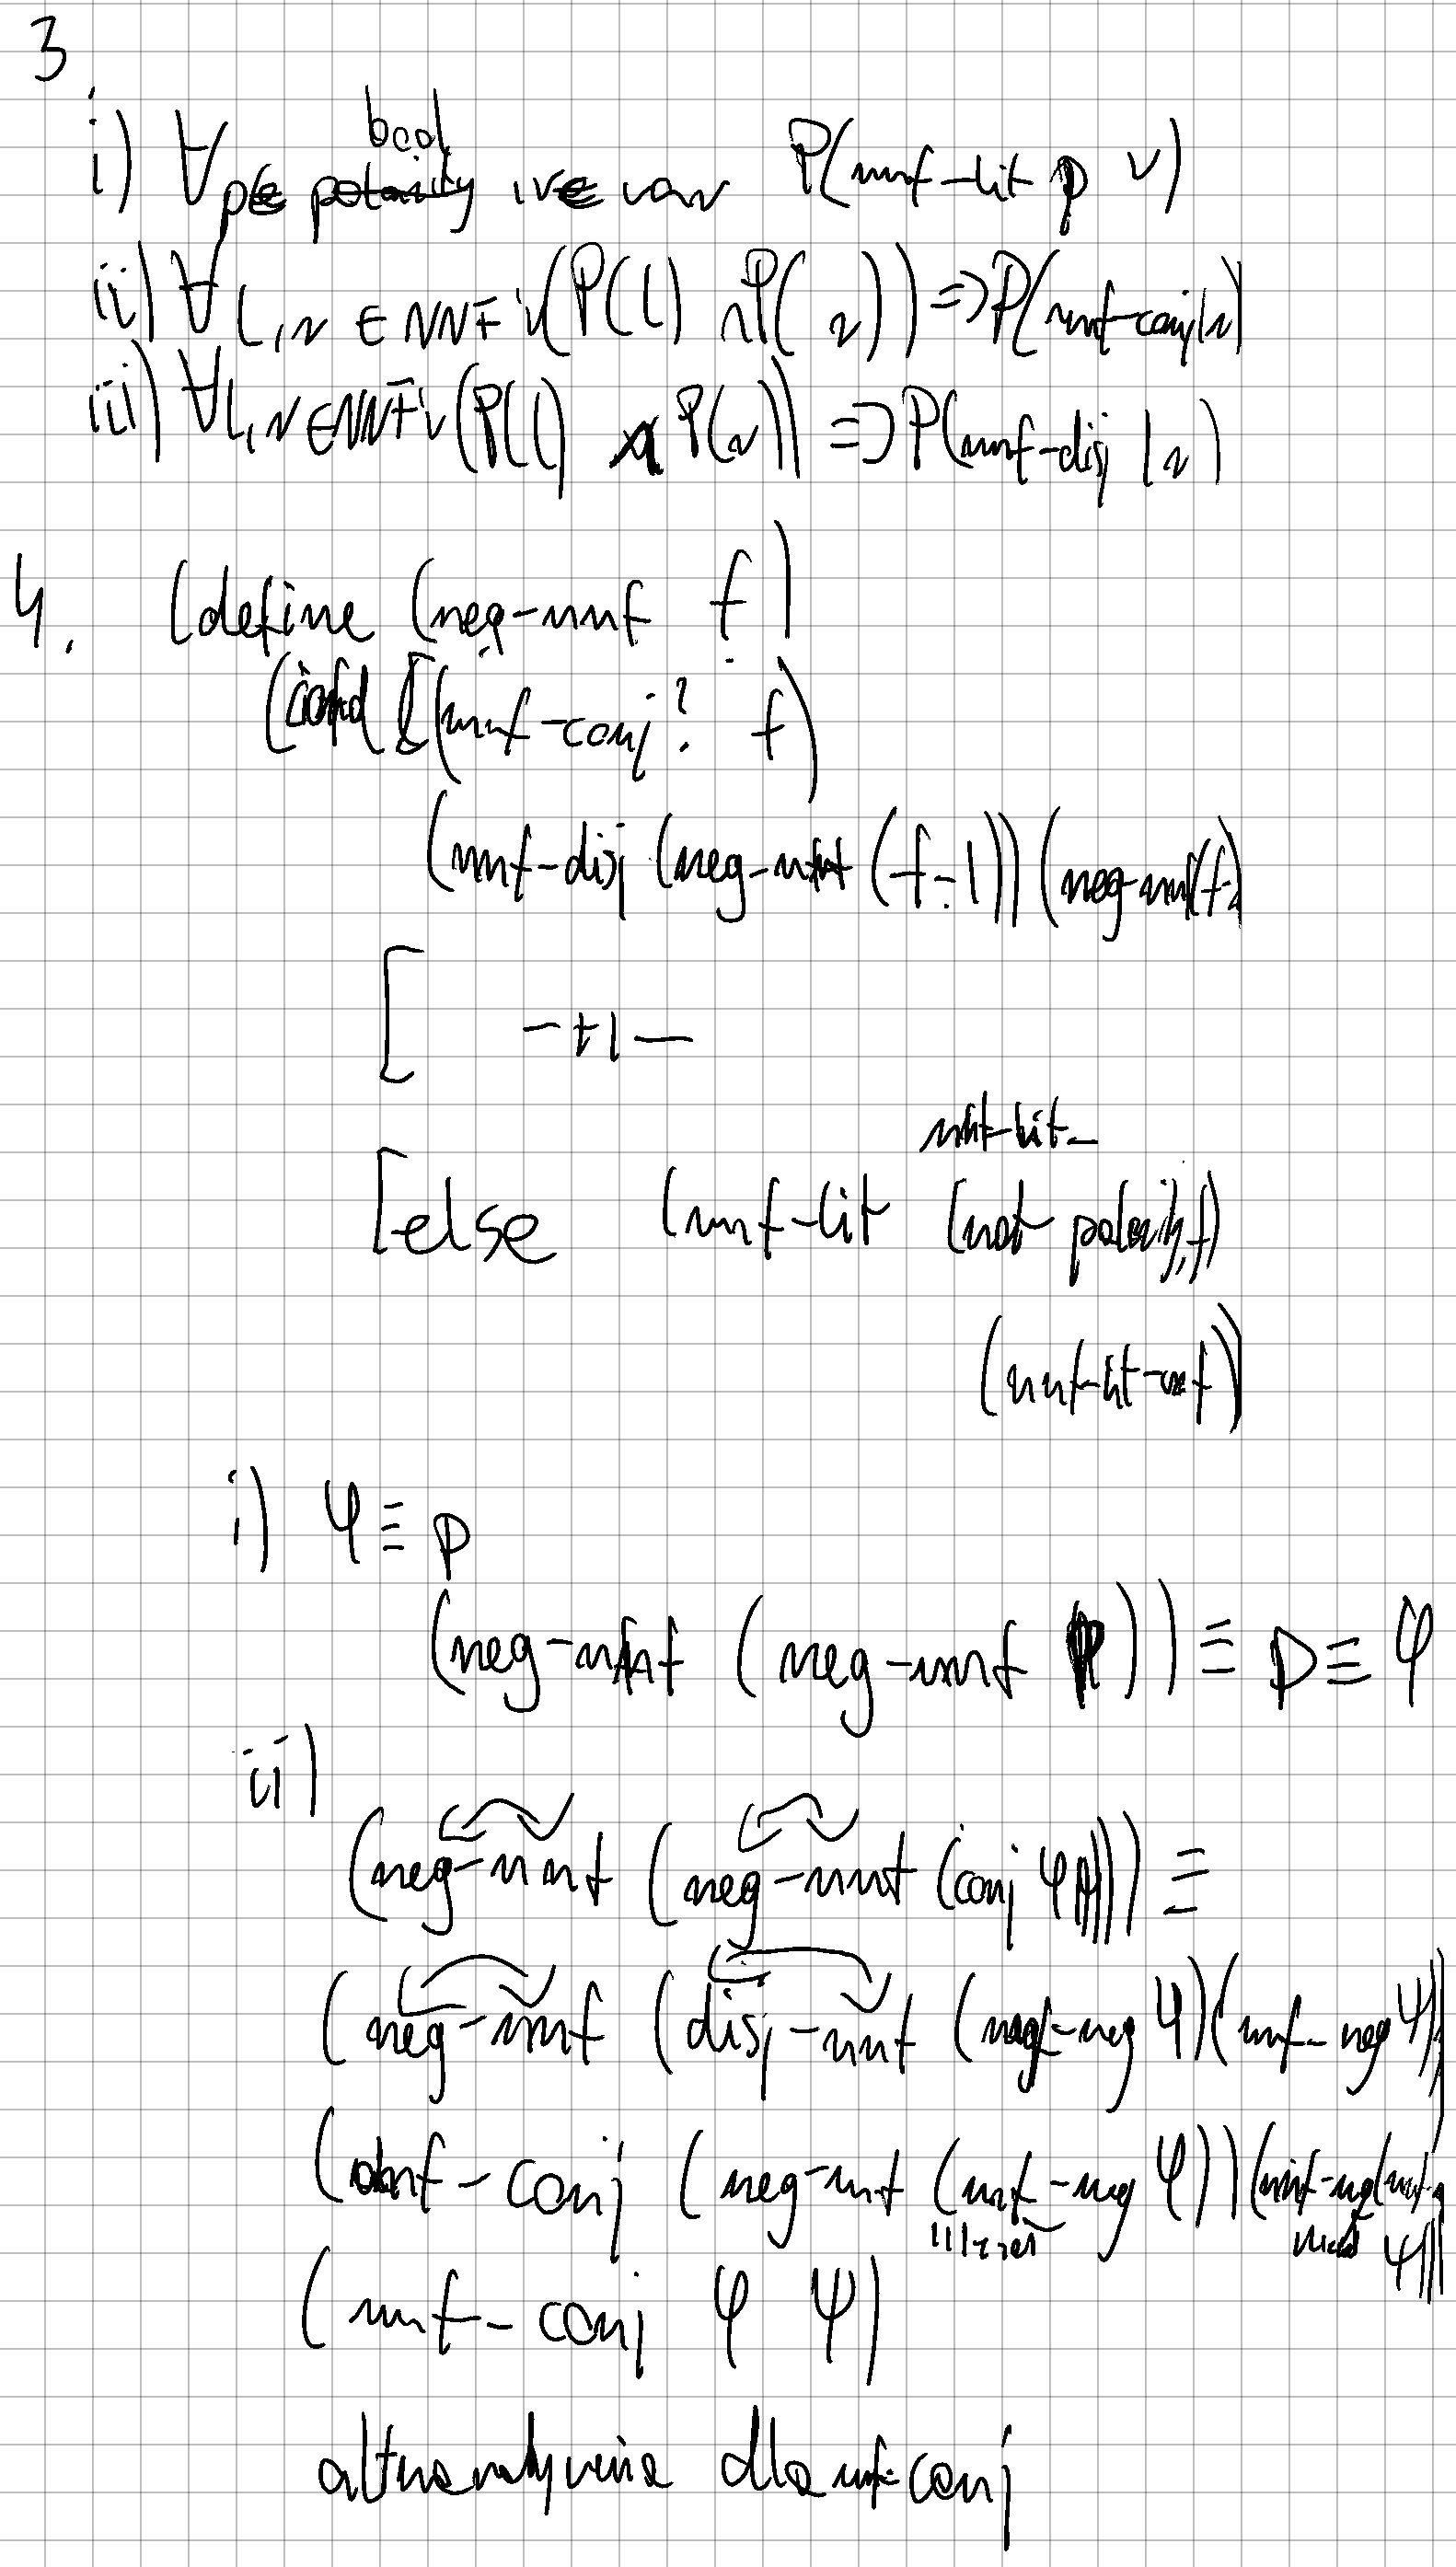 3
i) ∀ p∈ bool, v∈ var P(nnf-lit p v)
ii) ∀ l, r ∈ NNF v (P(l) ∧ P(r)) => P(nnf-conj l r)
iii) ∀ l, r ∈ NNF v (P(l) ∧ P(r)) => P(nnf-disj l r)
4. (define (neg-nnf f)
(cond [(nnf-conj? f)
(nnf-disj (neg-nnf (f-l)) (neg-nnf (f-
[ -+1-
nnf-lit-
[else (nnf-lit (not polarity f)
(nnf-lit-
i) φ ≡ p
(neg-nnf (neg-nnf p)) ≡ p ≡ φ
ii)
(neg-nnf (neg-nnf (conj φ ))) ≡
(neg-nnf (disj-nnf ( -neg φ) (nnf-neg ψ))
( -conj (neg-nnf (nnf-neg φ)) (nnf-neg (nnf-
ψ)))
(nnf-conj φ ψ)
dla nnf-conj